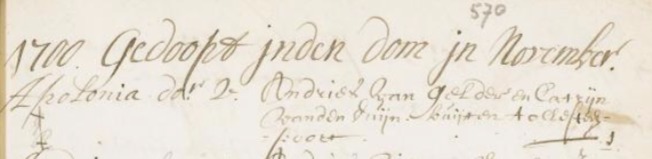 570
1700. Gedoopt jnden dom jn November.
Apolonia dor. 2. Andries van Gelder en Catrijn
vanden Duijn. buijten tolleste=
=poort. 1